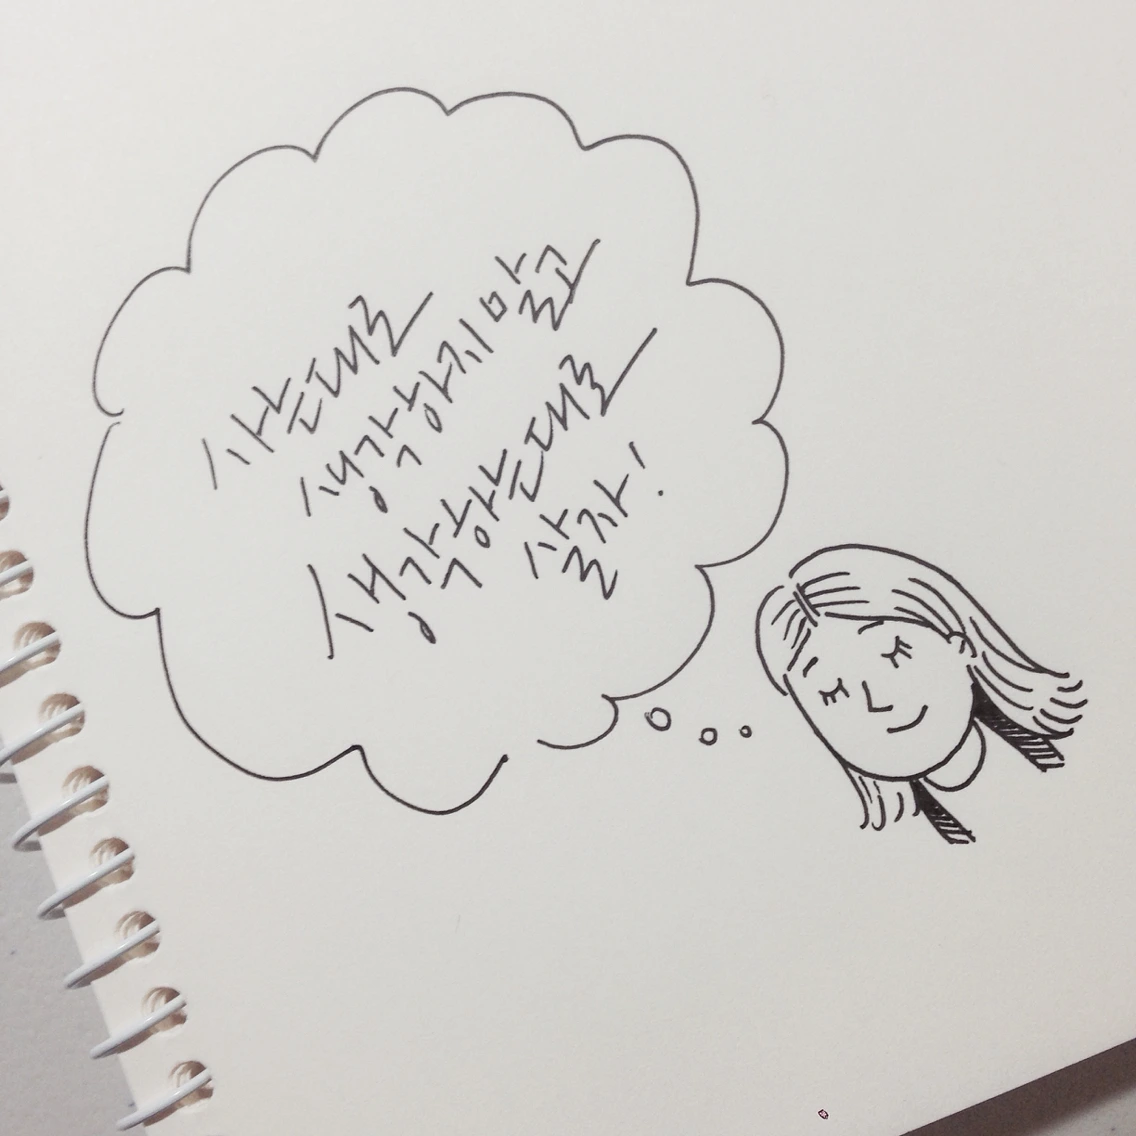 사는대로
생각하지말고
생각하는대로
살자!